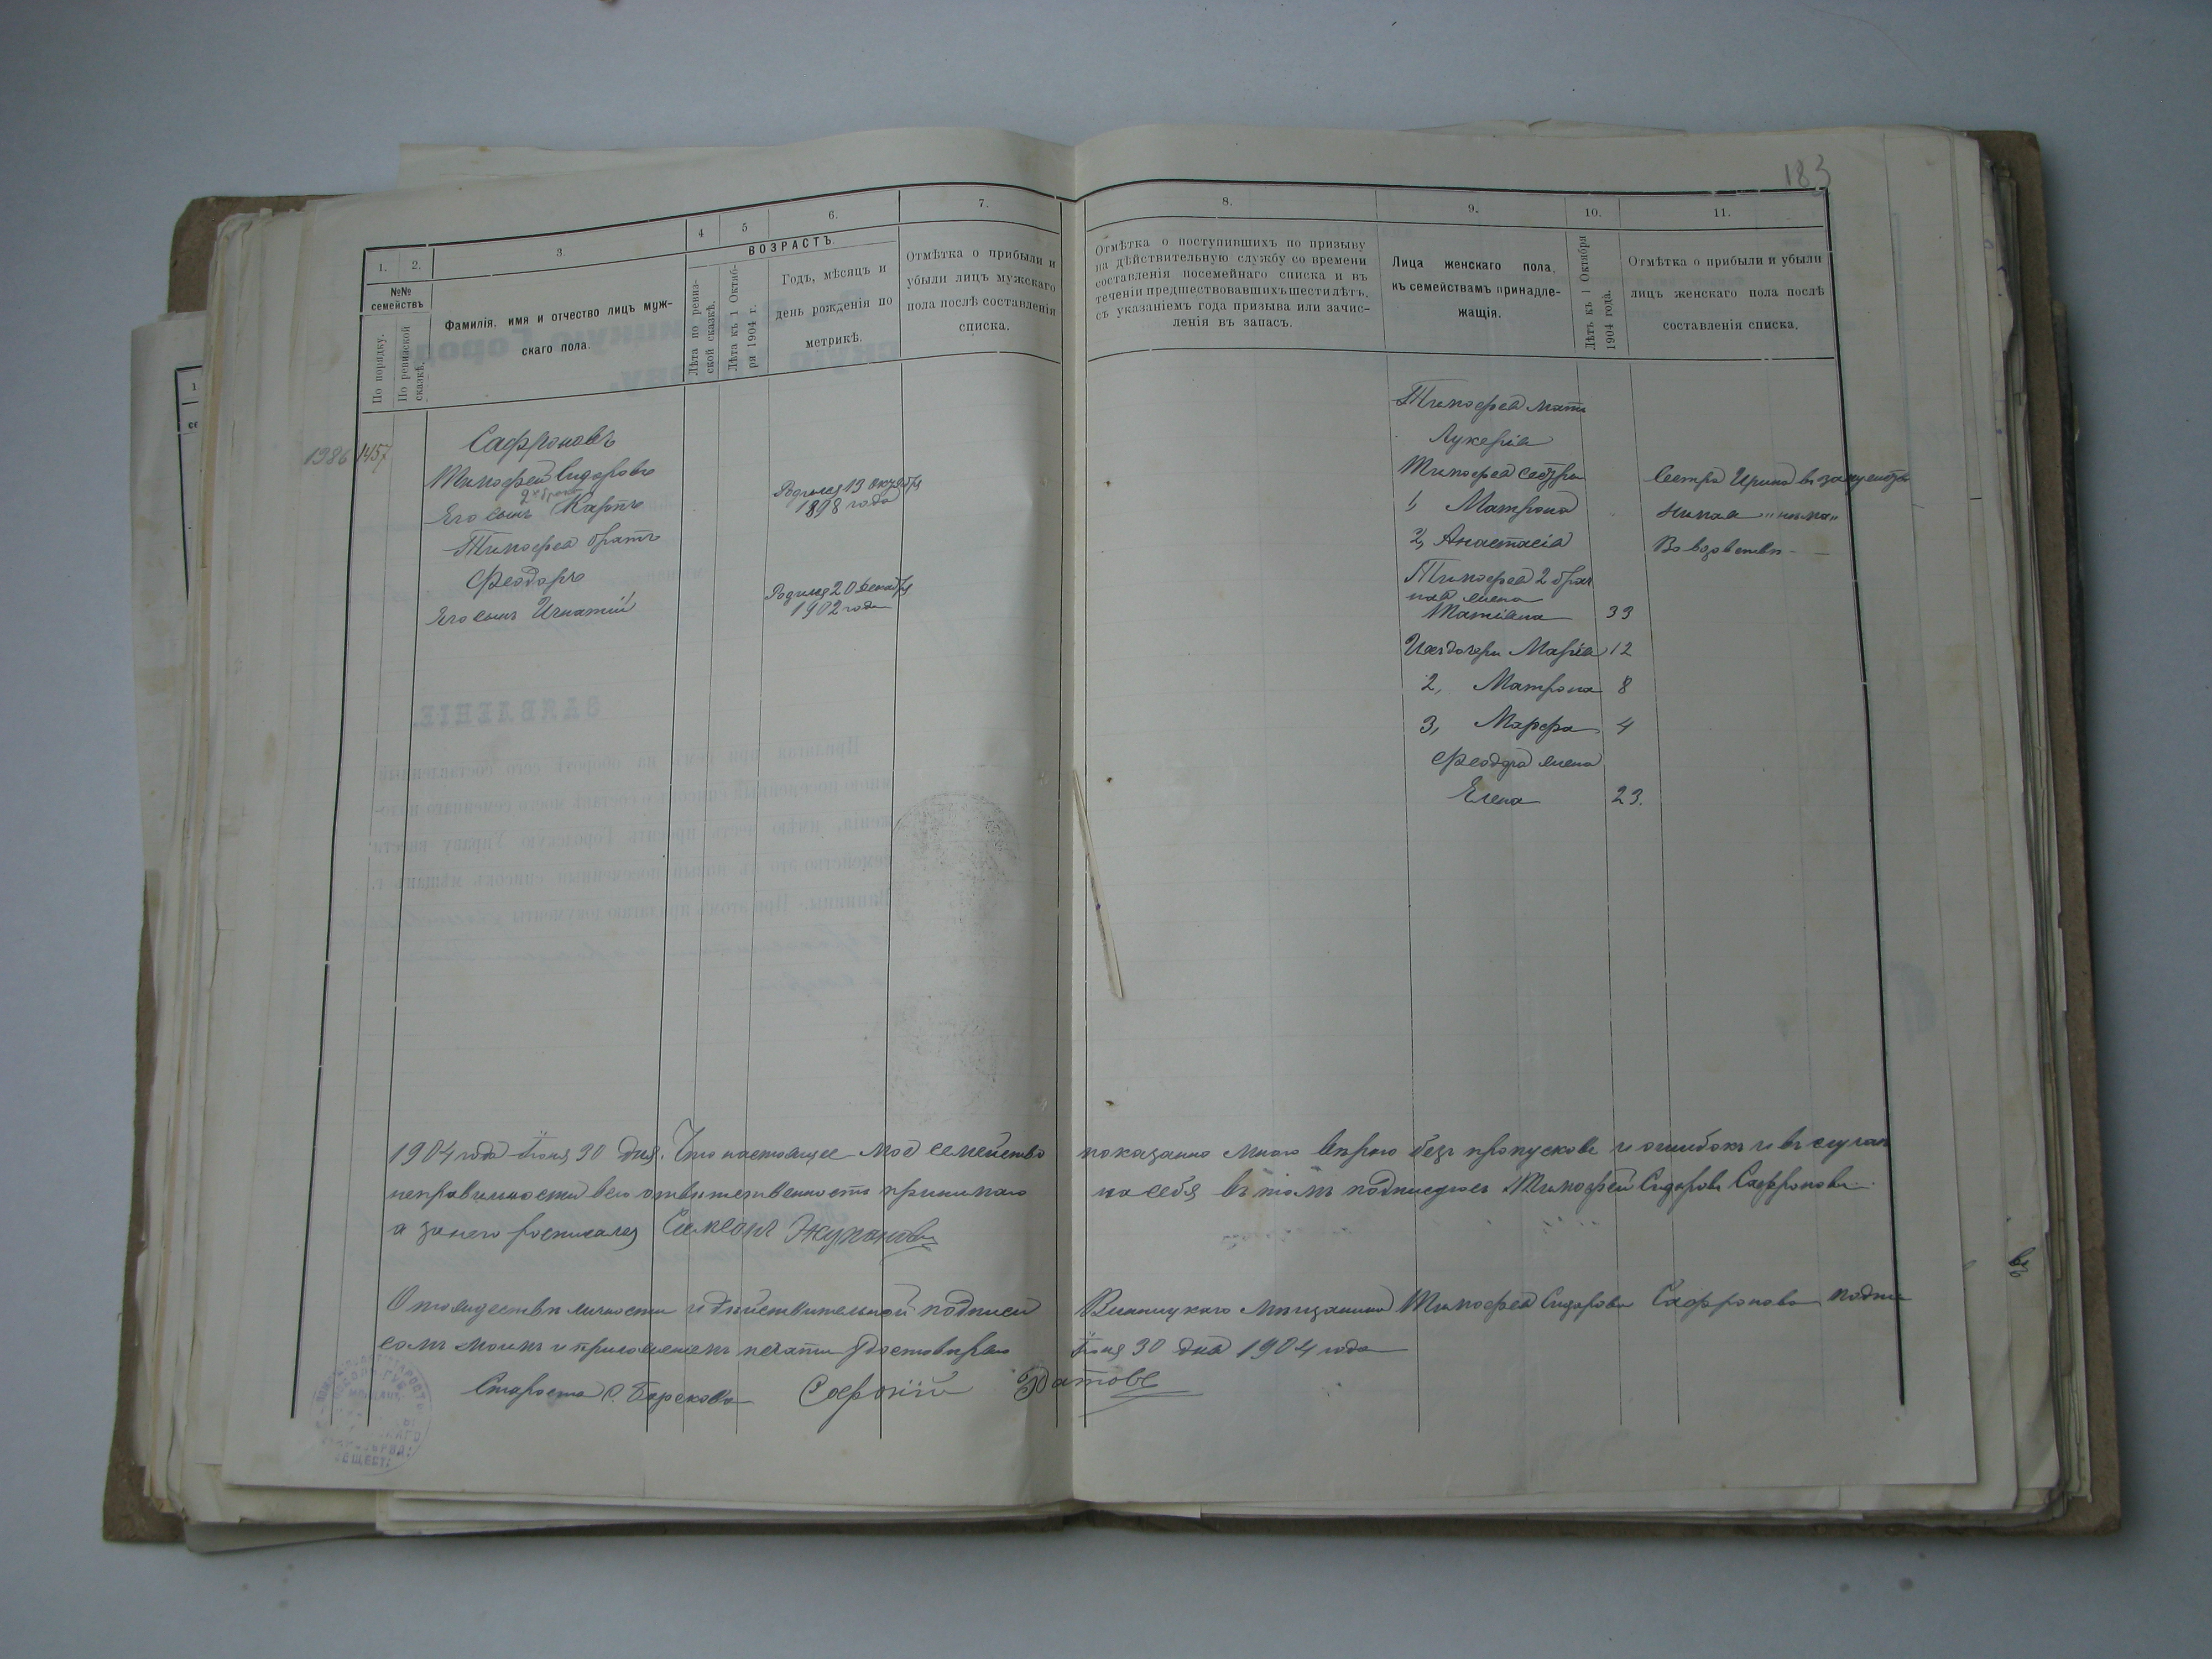 183
1.
2.
3.
4
5
6.
7.
8.
9.
10.
11.
№№ семействъ
По порядку.
По ревизской сказкѣ.
Фамилія, имя и отчество лицъ муж-
скаго пола.
ВОЗРАСТЪ
Лѣта по ревиз-
ской сказкѣ.
Лѣта къ 1 Октяб-
ря 1904 г.
Годъ, мѣсяцъ и
день рожденія по
метрикѣ.
Отмѣтка о прибыли и
убыли лицъ мужскаго
пола послѣ составленія
списка.
Отмѣтка о поступившихъ по призыву
на дѣйствительную службу со времени
составленія посемейнаго списка и въ
теченіи предшествовавшихъ шести лѣтъ,
съ указаніемъ года призыва или зачис-
ленія въ запасъ.
Лица женскаго пола,
къ семействамъ принадле-
жащія.
Лѣтъ къ 1 Октября
1904 года.
Отмѣтка о прибыли и убыли
лицъ женскаго пола послѣ
составленія списка.
1986 1457
Сафроновъ
Тимофей Сидоровъ
2 брака
Его сынъ Карпъ
Родился 13 октября
1898 года
Тимофея братъ
Феодоръ
Его сынъ Игнатій
Родился 20 декабря
1902 года
Тимофея мать
Лукерія
Тимофея сестры
1, Матрона
2, Анастасія
Тимофея 2 брач
ная жена
Татіана 33
Ихъ дочери Марія 12
2, Матрона 8
3, Марфа 4
Феодора жена
Елена 23.
Сестра Ирина въ замужествѣ
Во вдовствѣ
1904 года Іюня 30 дня. Что настоящее мое семейство показанно мною вѣрно безъ пропусковъ и ошибокъ и въ случаѣ
неправильности всю ответственность принимаю на себя въ томъ подписуюсь Тимофей Сидоровъ Сафроновъ
а за него росписался Симеонъ
О тождествѣ личности и дѣйствительной подписи Винницкаго мѣщанина Тимофея Сидорова Сафронова подпи
сомъ моимъ и приложеніемъ печати удостовѣряю Іюня 30 дня 1904 года
Староста с. Борсковъ